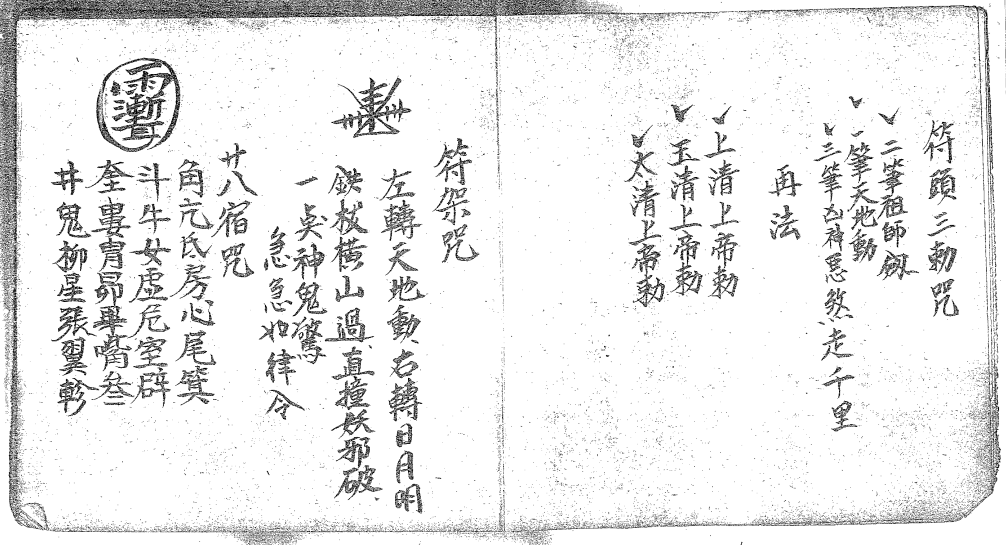 符頭三勅咒
二筆祖師劔
一筆天地動
三筆凶神惡煞走千里
再法
上清上帝勅
玉清上帝勅
太清上帝勅
符架咒
左轉天地動右轉日月明
鉄杖橫山過直撞妖邪破
一点神鬼驚
急急如律令
廿八宿咒
角亢氐房心尾箕
斗牛女虛危室辟
奎婁胃昴畢嘴叁
井鬼柳星張翼軫